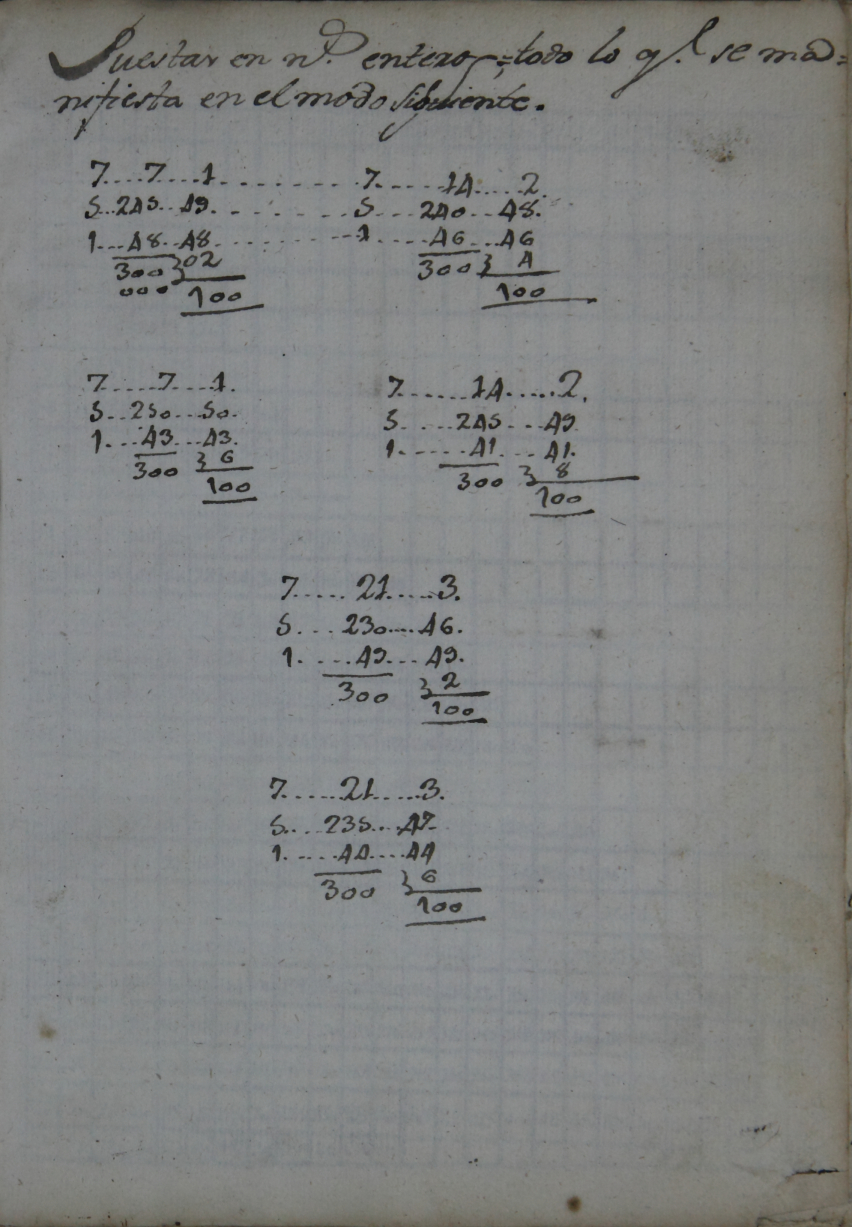 Puestas en n.º enteros, todo lo q.l se ma=
nifiesta en el modo siguiente.
7....7...1.........7.....14....2.
5..245..49.........5....240...48.
1...48..48.........1.....46...46
300 } 02 300 } 4
000 100 100
7....7...1. 7......14.....2.
5...250...50. 5....245...49
1....43...43. 1......41....41.
300 } 6 300 } 8
100 100
7.....21....3.
5....230....46.
1.....49....49.
300 } 2
100
7.....21....3.
5....235...47
1.....44....44
300 } 6
100